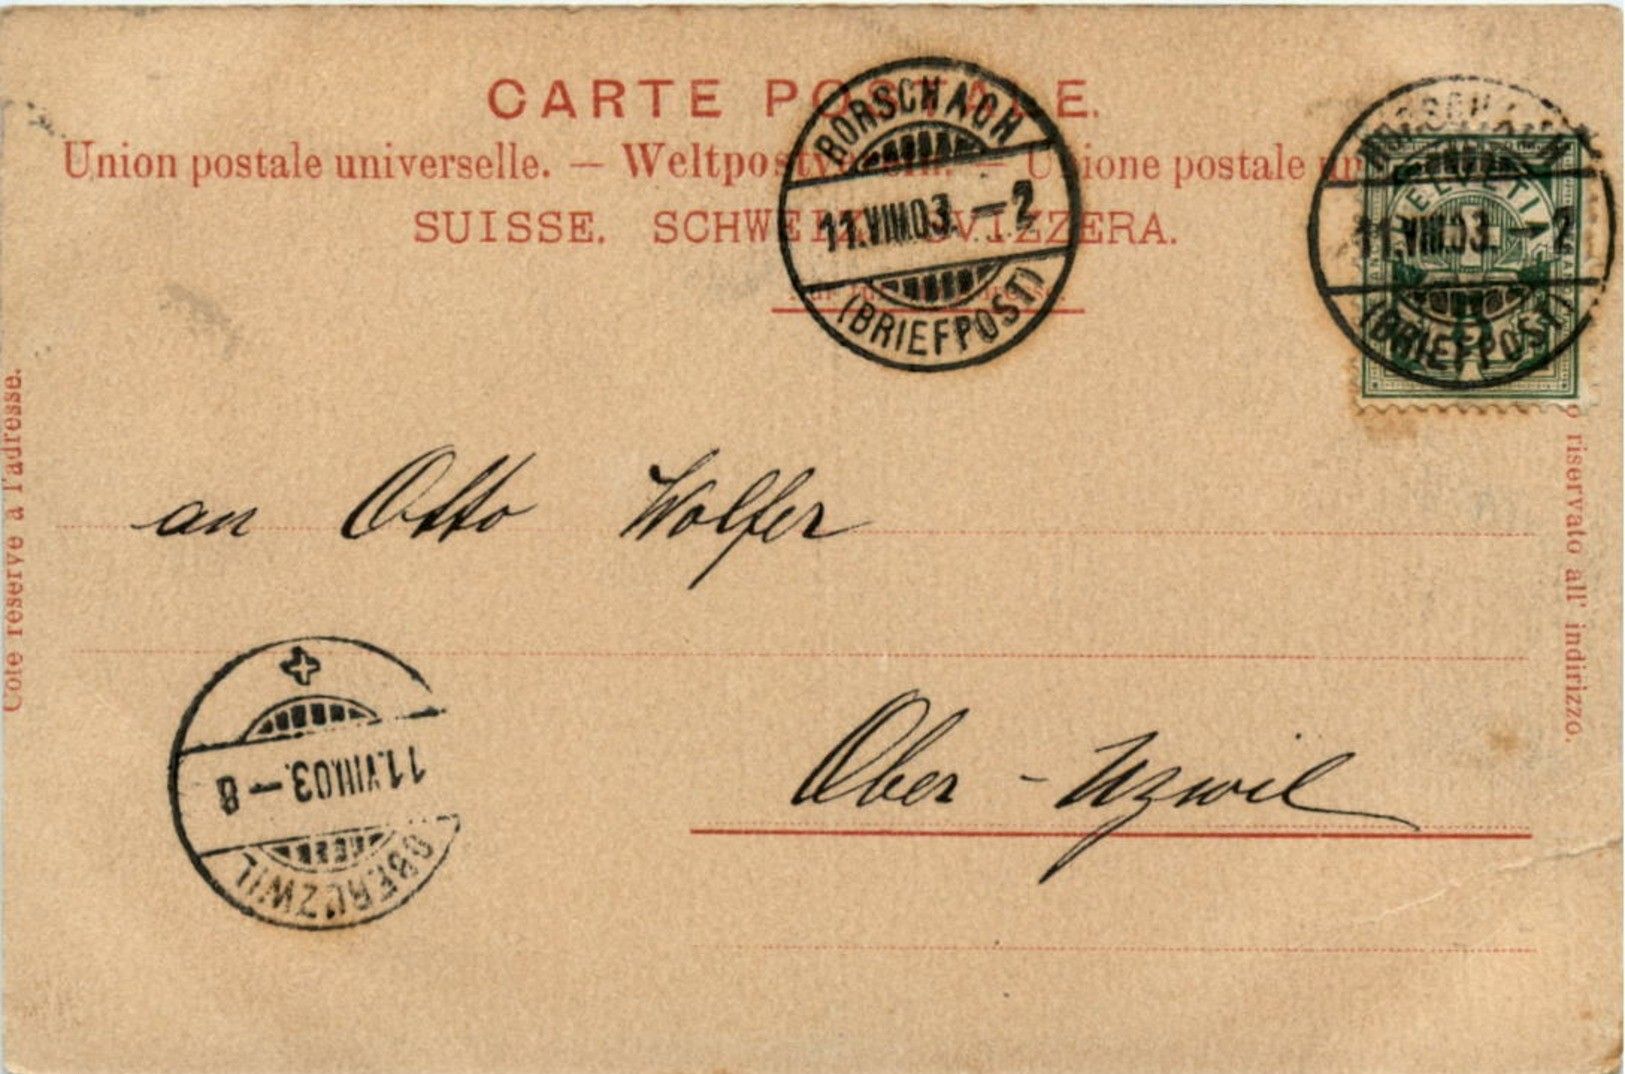 CARTE POSTALE.
Union postale universelle. — Weltpostverein. — Unione postale un
SUISSE. SCHWEIZ. SVIZZERA.
RORSCHACH
11.VIII.03.–2
(BRIEFPOST)
RORSCHACH
HELVETIA
11.VIII.03.–2
(BRIEFPOST)
Côté réservé à l'adresse.
o riservato all' indirizzo.
an Otto Wolfer
Ober - Uzwil
11.VIII.03.–8
OBERUZWIL